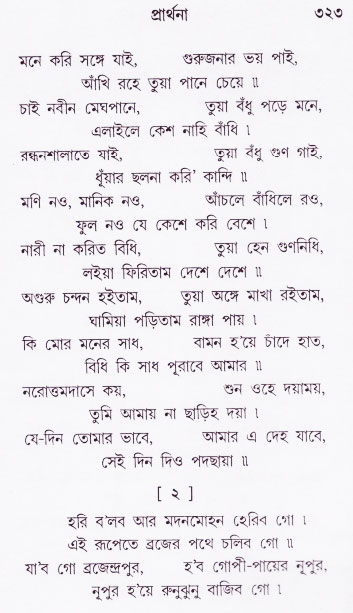 প্রার্থনা ৩২৩
মনে করি সঙ্গে যাই, গুরুজনার ভয় পাই,
আঁখি রহে তুয়া পানে চেয়ে ॥
চাই নবীন মেঘপানে, তুয়া বঁধু পড়ে মনে,
এলাইলে কেশ নাহি বাঁধি ।
রন্ধনশালাতে যাই, তুয়া বঁধু গুণ গাই,
ধূঁয়ার ছলনা করি' কান্দি ॥
মণি নও, মানিক নও, আঁচলে বাঁধিলে রও,
ফুল নও যে কেশে করি বেশে ।
নারী না করিত বিধি, তুয়া হেন গুণনিধি,
লইয়া ফিরিতাম দেশে দেশে ॥
অগুরু চন্দন হইতাম, তুয়া অঙ্গে মাখা রইতাম,
ঘামিয়া পড়িতাম রাঙ্গা পায় ।
কি মোর মনের সাধ, বামন হ'য়ে চাঁদে হাত,
বিধি কি সাধ পূরাবে আমার ॥
নরোত্তমদাসে কয়, শুন ওহে দয়াময়,
তুমি আমায় না ছাড়িহ দয়া ।
যে-দিন তোমার ভাবে, আমার এ দেহ যাবে,
সেই দিন দিও পদছায়া ॥
[ ২ ]
হরি ব'লব আর মদনমোহন হেরিব গো ।
এই রূপেতে ব্রজের পথে চলিব গো ॥
যা'ব গো ব্রজেন্দ্রপুর, হ'ব গোপী-পায়ের নূপুর,
নূপুর হ'য়ে রুনুঝুনু বাজিব গো ।